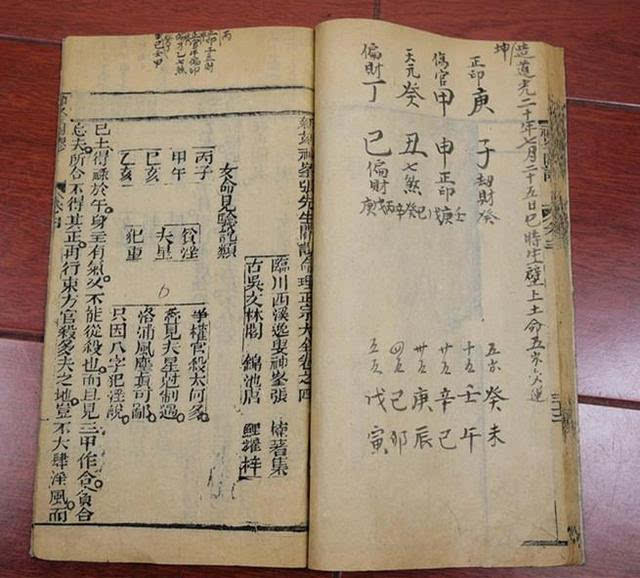 坤
造道光二十年七月二十五日巳時生壁上土命五六歲運
正印庚子劫財癸
傷官甲申正印戊庚壬
天元癸丑七煞己癸辛
偏財丁巳偏財庚丙戊
五六癸未
十五壬午
廿五辛巳
卅五庚辰
四五己卯
五五戊寅
丙
新刻神峯張先生闢謬命理正宗大全卷之四
臨川西溪逸叟神峯張楠著集
古吳文林閣錦池唐鯉耀梓
女命見驗訛類
丙子 貧淫
甲午 夫星
己亥 犯重
乙亥
爭權官殺太何多
惹見夫星尅制過
洛浦風塵真可鄙
只因八字犯淫訛
己土得祿於午身主有氣又不能從殺也而且見三甲作合貪合
忘夫所合不得其正再行東方官殺多夫之地豈不大肆淫風而